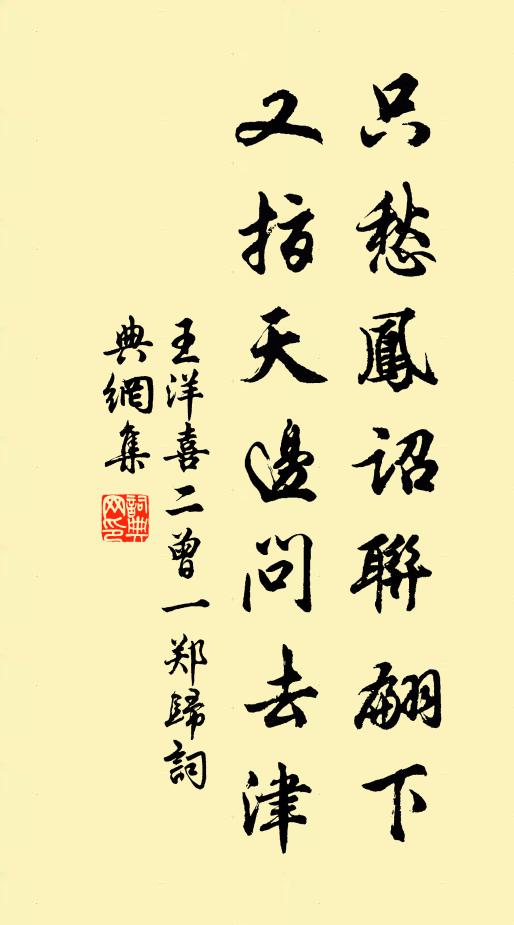 只愁鳳詔聯翩下
又指天邊問去津
王洋喜二曾一郑歸詞
典網集
詞典網印